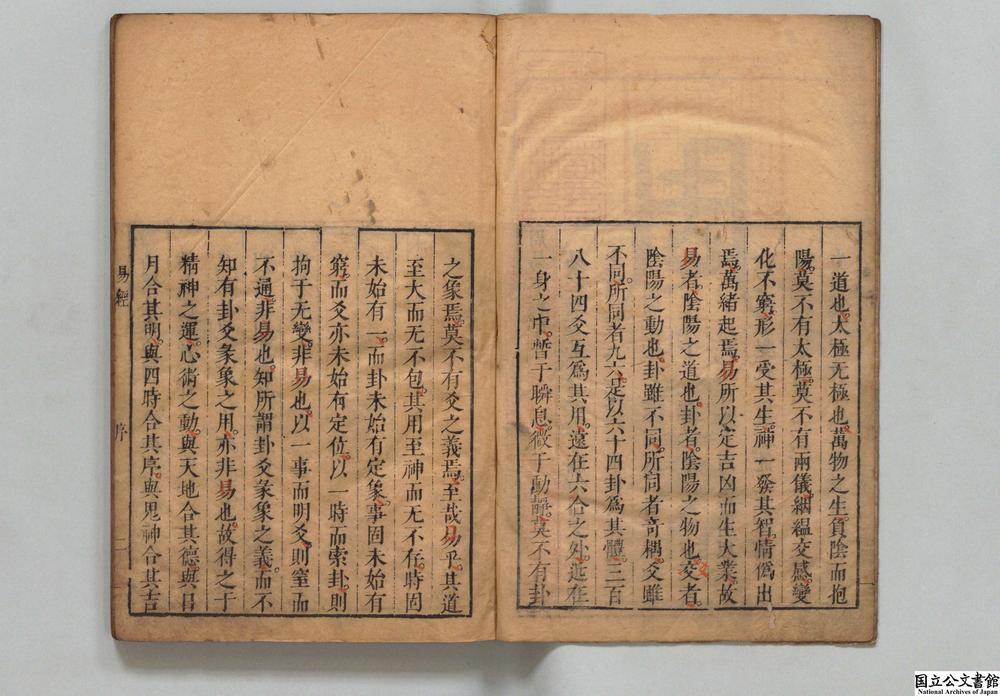 一道也太極无極也萬物之生負陰而抱
陽莫不有太極莫不有兩儀絪縕交感變
化不窮形一受其生神一發其智情僞出
焉萬緒起焉易所以定吉凶而生大業故
易者陰陽之道也卦者陰陽之物也爻者
陰陽之動也卦雖不同所同者竒耦爻雖
不同所同者九六是以六十四卦爲其體三百
八十四爻互爲其用遠在六合之外近在
一身之中暫于瞬息微于動靜莫不有卦
之象焉莫不有爻之義焉至哉易乎其道
至大而无不包其用至神而无不存時固
未始有一而卦未始有定象事固未始有
窮而爻亦未始有定位以一時而索卦則
拘于无變非易也以一事而明爻則窒而
不通非易也知所謂卦爻彖象之義而不
知有卦爻彖象之用亦非易也故得之于
精神之運心術之動與天地合其德與日
月合其明與四時合其序與鬼神合其吉
易經 序 二
国立公文書館
National Archives of Japan